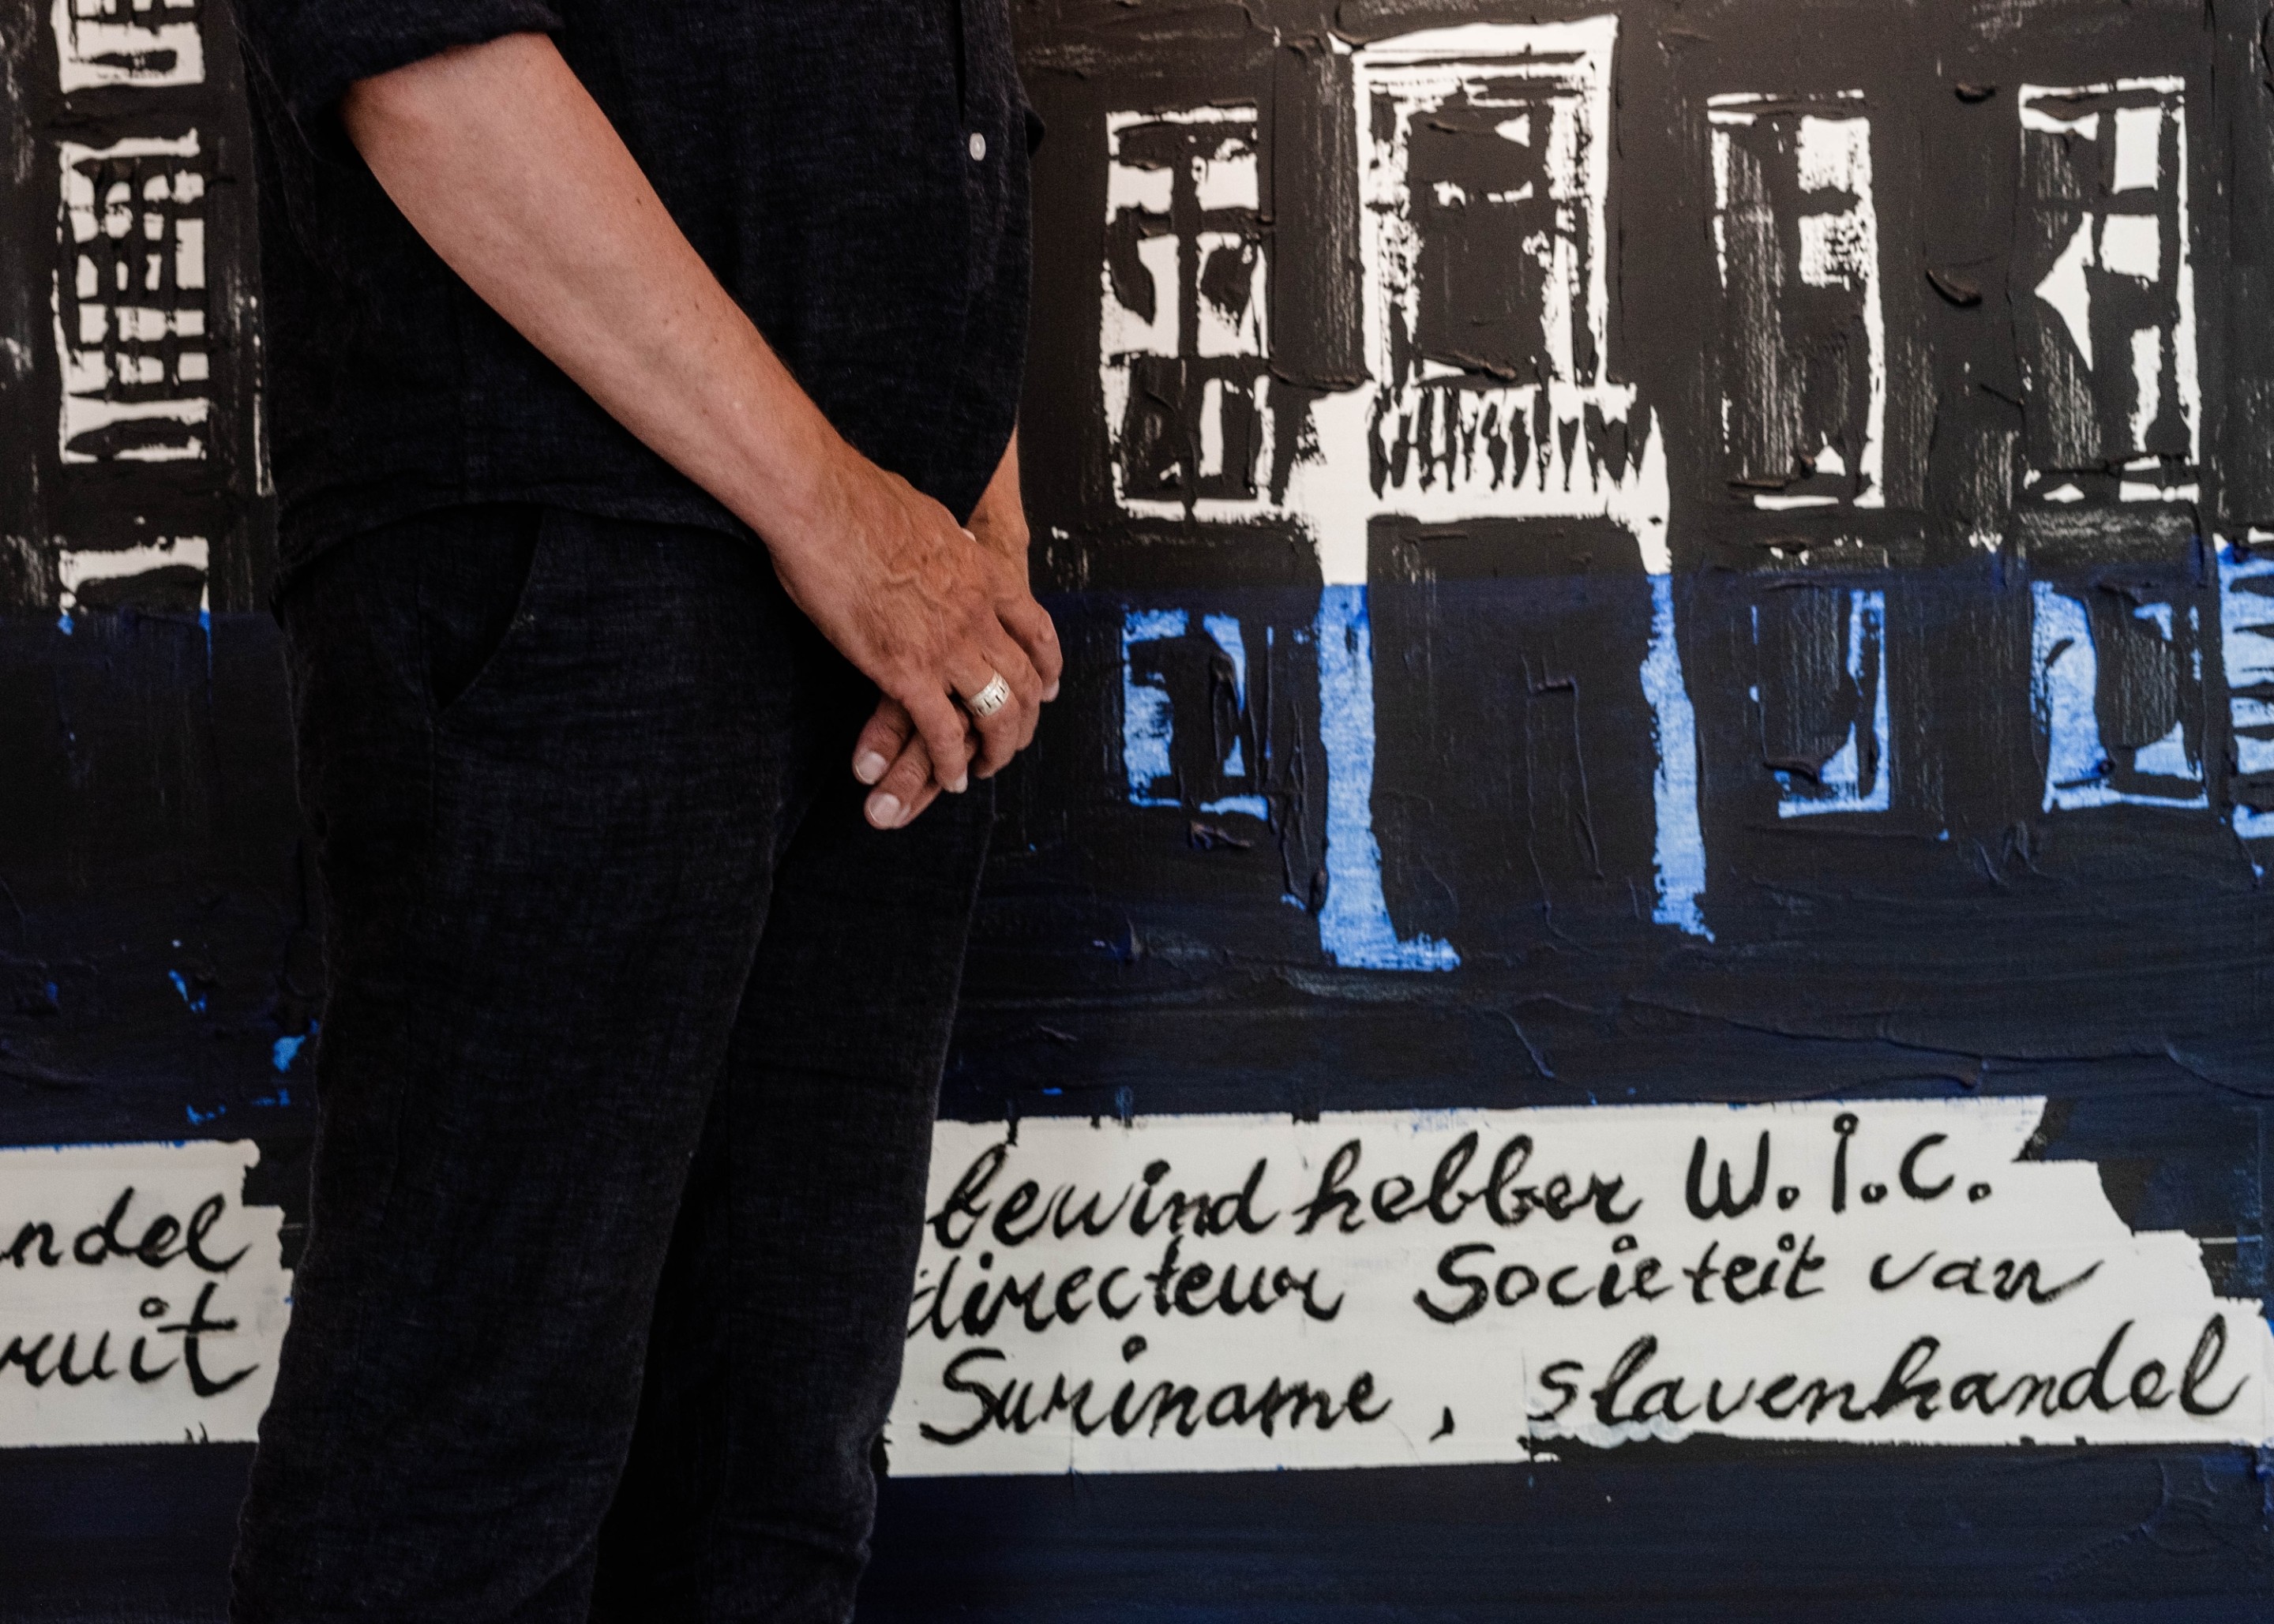 ndel
ruit
bewindhebber W.I.C.
directeur Societeit van
Suriname, slavenhandel